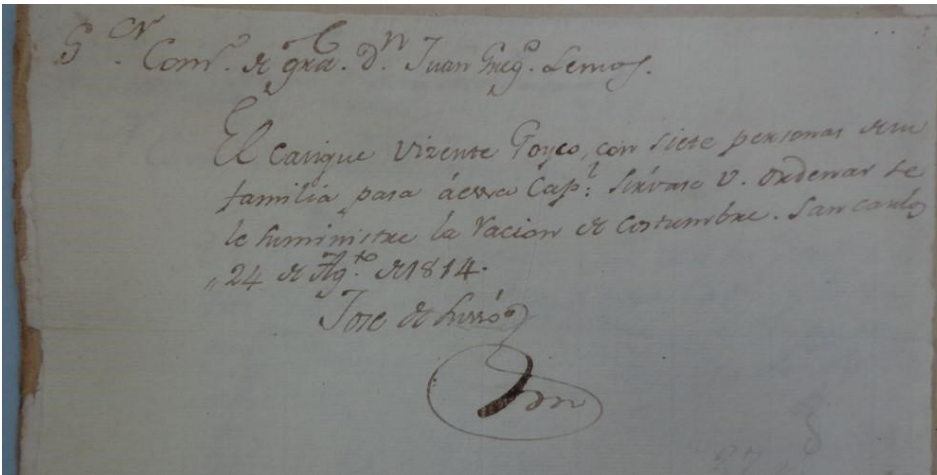 S.or Com.o de gra. D.n Juan Greg.o Lemos.
El Casique Vizente Goyco, con siete personas desu
familia pasa áessa Cap.l: Sirvase V. ordenar se
le suministre la racion de costumbre. San Carlos
24 de Ag.to de 1814.
Jose de Susso